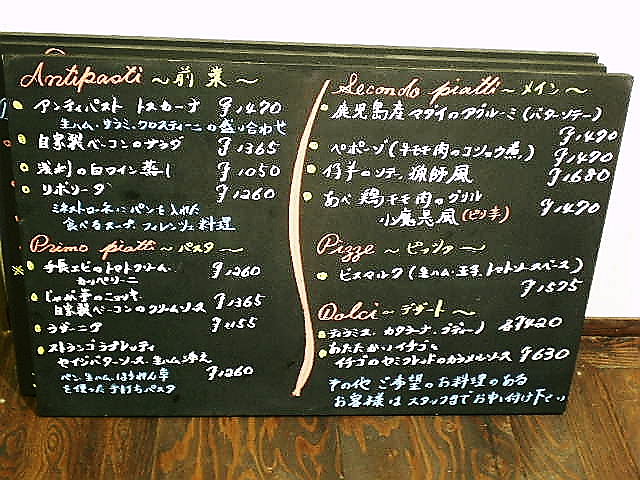 Antipasti ~前菜~
アンティパスト トスカーナ ¥1470
生ハム、サラミ、クロスティーニの盛り合わせ
自家製ベーコンのサラダ ¥1365
浅利の白ワイン蒸し ¥1050
リボリータ ¥1260
ミネストローネにパンを入れた
食べるスープ、フィレンツェ料理
Primo piatti ~パスタ~
手長エビのトマトクリーム ¥1260
カッペリーニ
じゃが芋のニョッキ ¥1365
自家製ベーコンのクリームソース
ラザーニア ¥1155
ストランゴラプレッティ
セイジバターソース、生ハム添え ¥1260
パン、生ハム、ほうれん草
を使った手打ちパスタ
Secondo piatti ~メイン~
鹿児島産マダイのグルノーミ(バターソテー) ¥1470
ペポーゾ(牛モモ肉のコショウ煮) ¥1470
仔羊のソテー 猟師風 ¥1680
あべ鶏モモ肉のグリル
小悪魔風(ピリ辛) ¥1470
Pizze ~ピッツァ~
ビスマルク(生ハム・玉子、トマトソースベース)
¥1575
Dolci ~デザート~
ティラミス、カタラーナ、 各¥420
あたたかいイチゴと
イチゴのセミフレッドのカラメルソース ¥630
その他 ご希望のお料理のある
お客様は スタッフまでお申し付け下さい